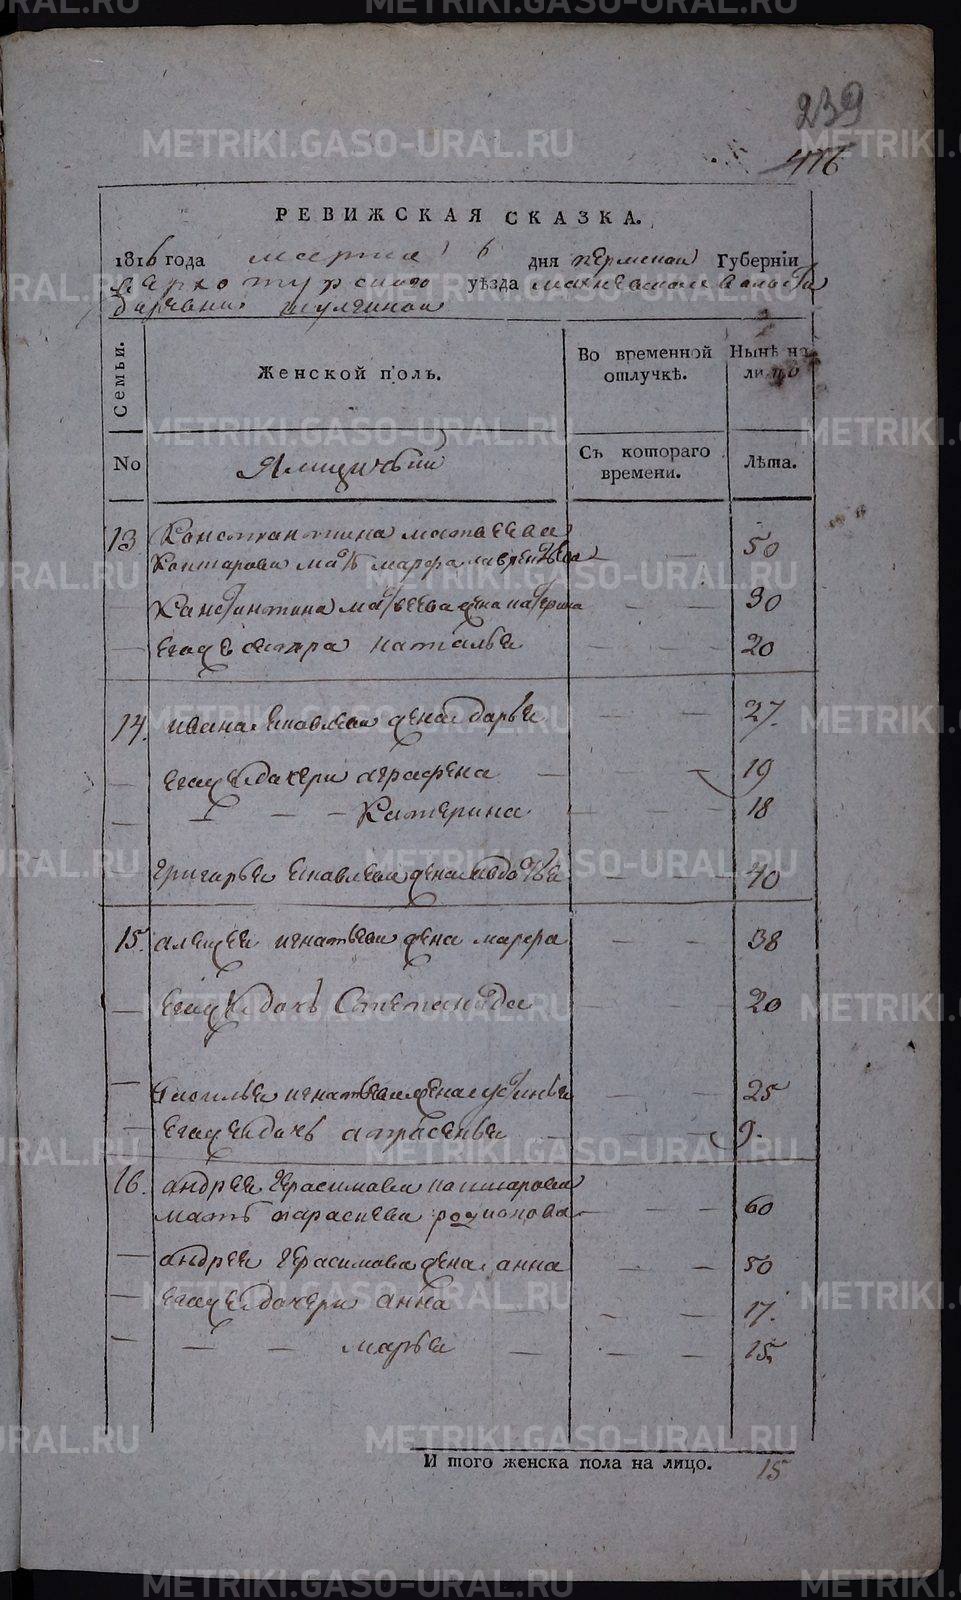 239
476
РЕВИЖСКАЯ СКАЗКА.
1816 года марта 6 дня пермской Губернїи
верхотурскаго уѣзда махневской волости
деревни
Семьи.
Женской полъ.
Во временной отлучкѣ.
Нынѣ на лицо
No
Ямщичьии
Съ котораго времени.
Лѣта.
13 Констхантина матвеева
мать марфа лаврентьева — — 50
— Констинтина матвеева жена катерина — — 30
— егоже сестра наталья — — — 20
14. ивана яковлева жена дарья — — 27.
— егожъ дочери аграфена — — 19
— — — — Катерина — — 18
— григорья яковлева жена авдотья — — 40
15. алексея игнатьева жена марфа — — 38
— егожъ дочь Степанида — — 20
— василья игнатьева жена устинья — — 25
— егожъ дочь апрасенья — — 9.
16. андрея герасимова
мать парасковья родионова — — 60
— андрея герасимова жена анна — — 50
— егожъ дочери анна — — 17.
— — — марья — — — 15.
И того женска пола на лицо. 15
METRIKI.GASO-URAL.RU